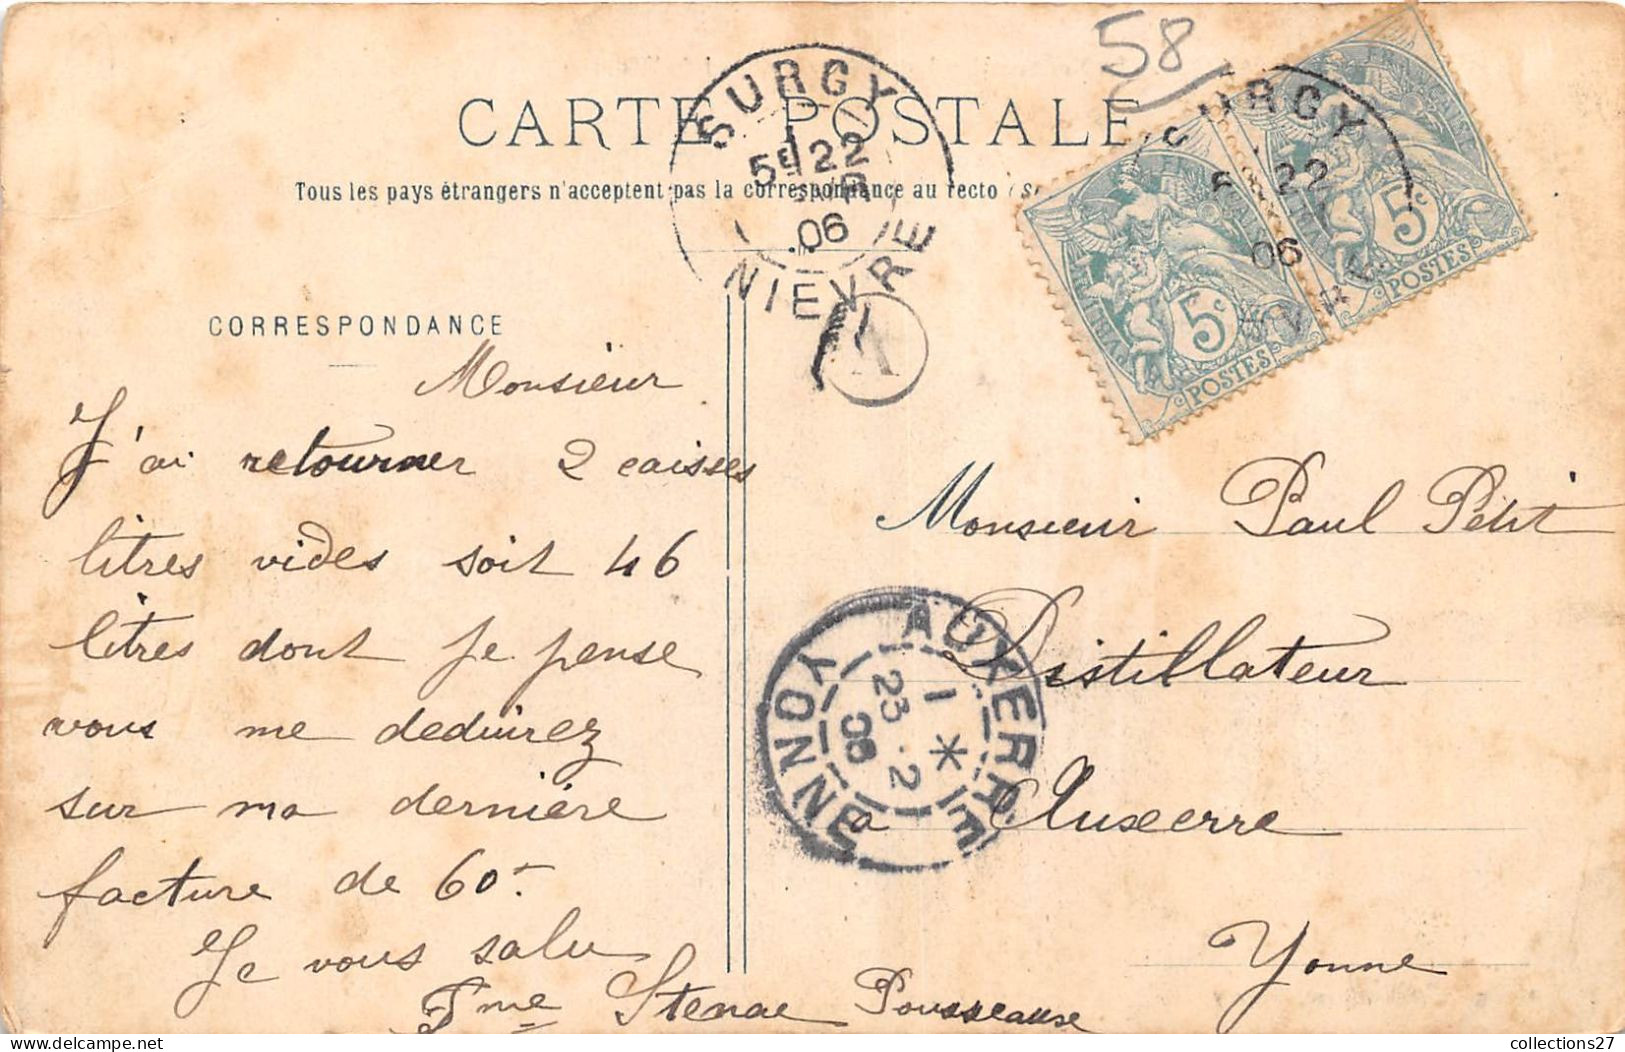 58
CARTE POSTALE
Tous les pays étrangers n'acceptent pas la correspondance au recto
SURGY
5E 22
06
NIEVRE
SURGY
5 22
06
RÉPUBLIQUE FRANÇAISE
5c
POSTES
5c
POSTES
A
CORRESPONDANCE
Monsieur
J'ai retourner 2 caisses
litres vides soit 46
litres dont je pense
vous me deduirez
sur ma dernière
facture de 60f.
Je vous salu
Stenac Pousseaux
Monsieur Paul Petit
Distillateur
a Auxerre
Yonne
AUXERRE
1 *
23 . 2
06
YONNE
collections27